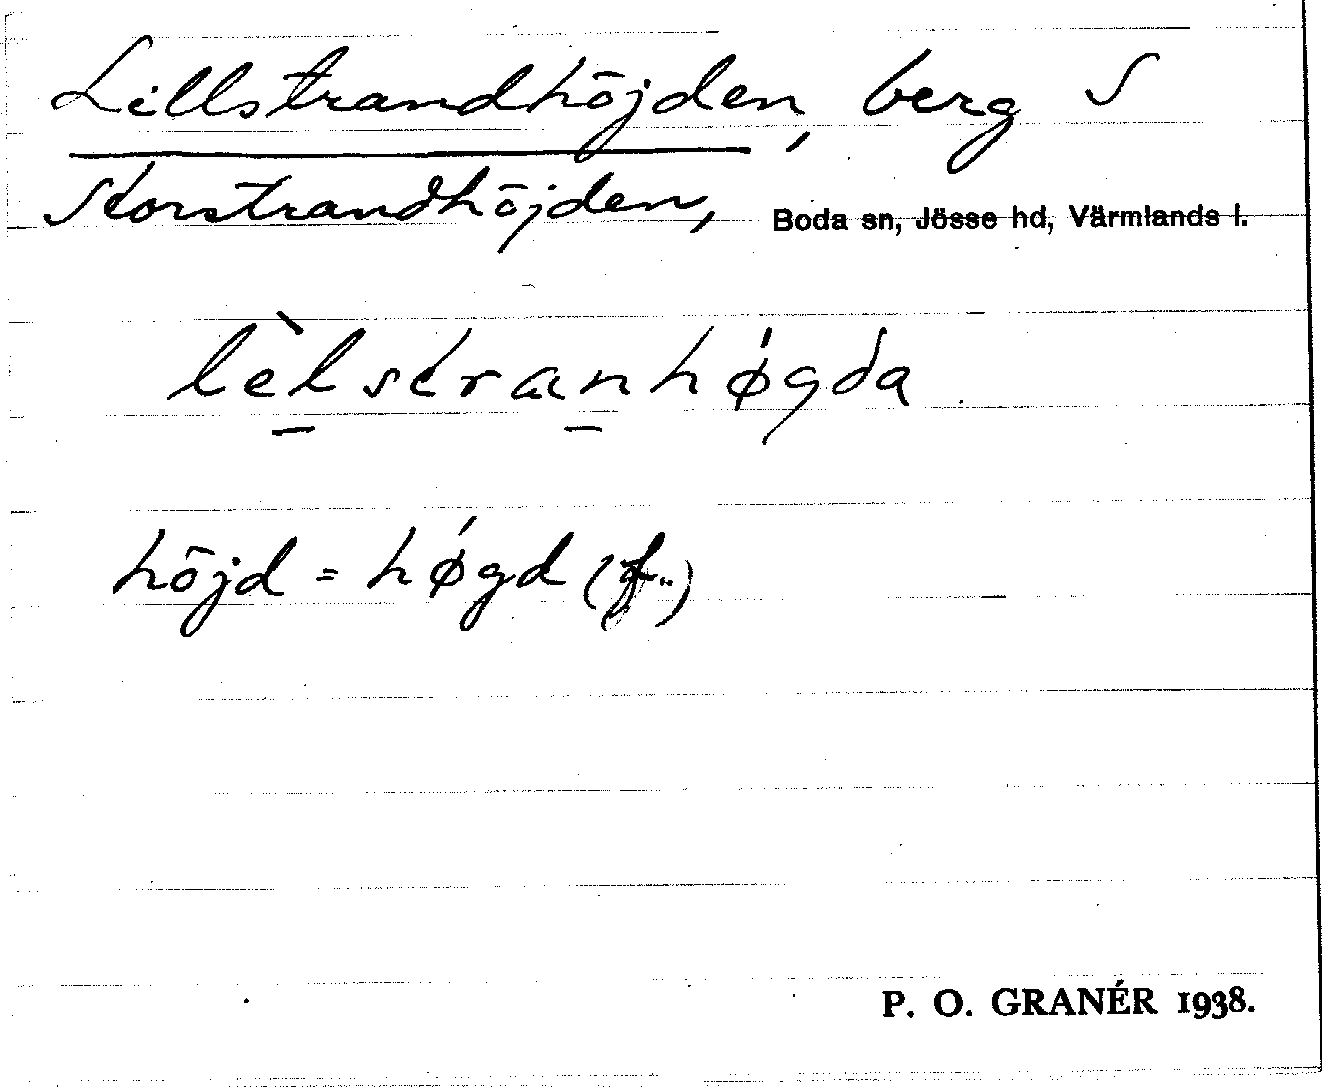 Lillstrandhöjden, berg S
Storstrandhöjden, Boda sn, Jösse hd, Värmlands l.
lèl̲stran̲hǿgda
höjd = hǿgd (f.)
P. O. GRANÉR 1938.